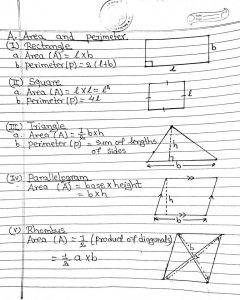 A. Area and perimeter.
(I) Rectangle
a. Area (A) = l x b
b. perimeter (P) = 2 (l+b)
b
l
(II) Square
a. Area (A) = l x l = l²
b. Perimeter (P) = 4l
(III) Triangle
a. Area (A) = 1/2 b x h
b. perimeter (P) = sum of lengths
of sides
h
b
(IV) Parallelogram
Area (A) = base x height
= b x h
h
b
(V) Rhombus
Area (A) = 1/2 (product of diagonals)
= 1/2 a x b